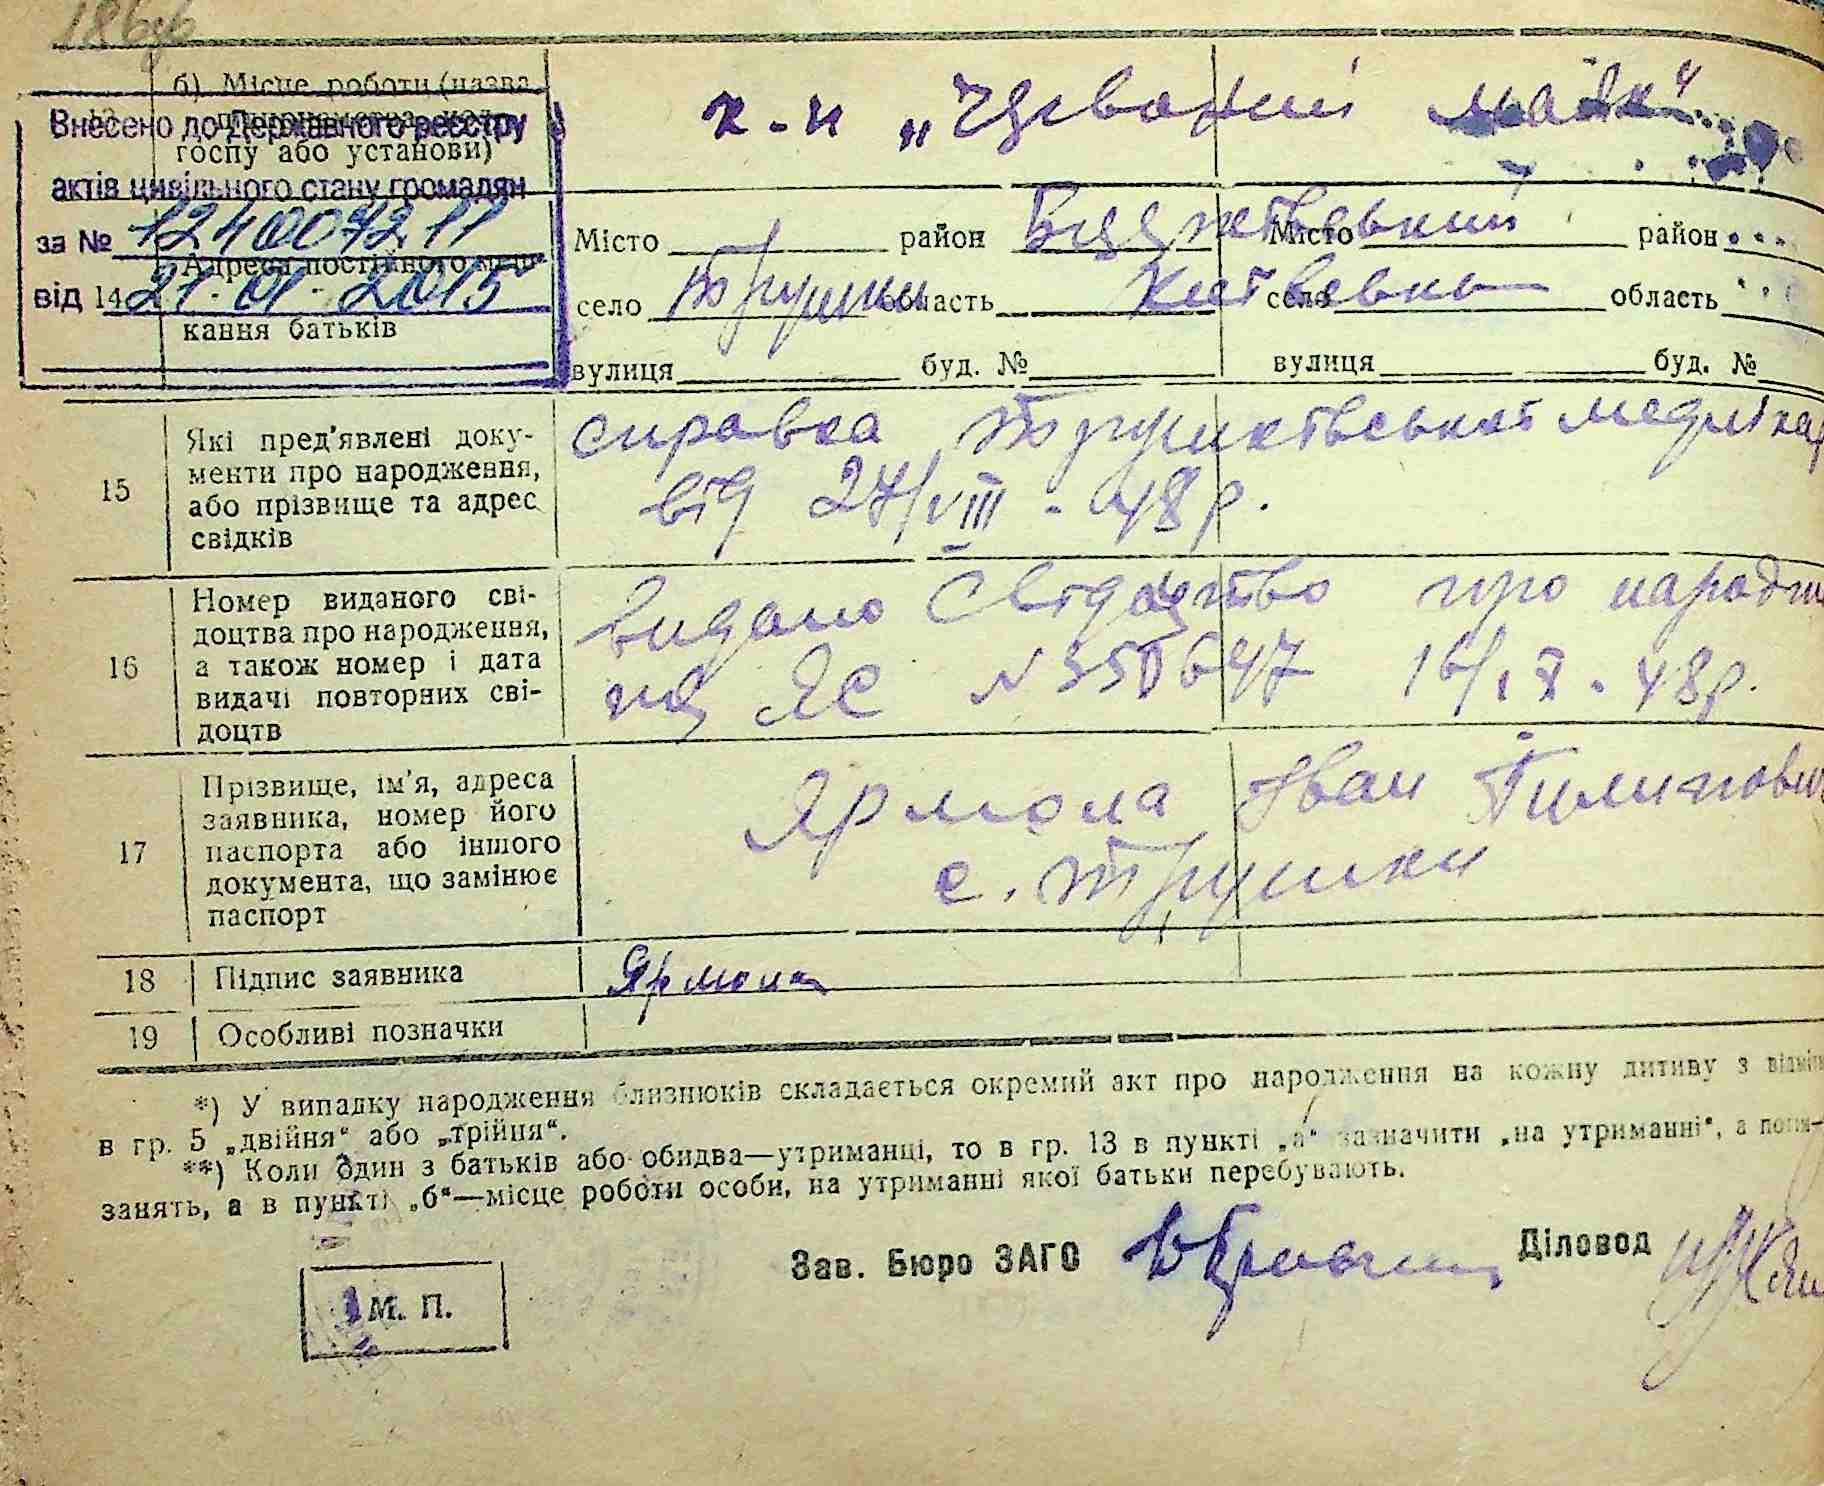 186
б) Місце роботи (назва
підприємства, кол-
госпу або установи)
к-п „Червоний маяк"
Внесено до Державного реєстру
актів цивільного стану громадян
за № 1240097211
від 21.01.2015
14
Адреса постійного меш-
кання батьків
Місто район Місто район
село Трушки область Київська село область
вулиця буд. № вулиця буд. №
15
Які пред'явлені доку-
менти про народження,
або прізвище та адрес
свідків
справка Трушківської
від 27/VIII - 48 р.
16
Номер виданого сві-
доцтва про народження,
а також номер і дата
видачі повторних сві-
доцтв
видано Свідоцтво про народж
ЯС N 350647 16/IX - 48 р.
17
Прізвище, ім'я, адреса
заявника, номер його
паспорта або іншого
документа, що замінює
паспорт
Ярмола Іван Пилипович
с. Трушки
18 Підпис заявника Ярмола
19 Особливі позначки
*) У випадку народження близнюків складається окремий акт про народження на кожну дитину з
в гр. 5 „двійня" або „трійня".
**) Коли один з батьків або обидва—утриманці, то в гр. 13 в пункті „а" зазначити „на утриманні", а
занять, а в пункті „б"—місце роботи особи, на утриманні якої батьки перебувають.
Зав. Бюро ЗАГС Діловод
М. П.